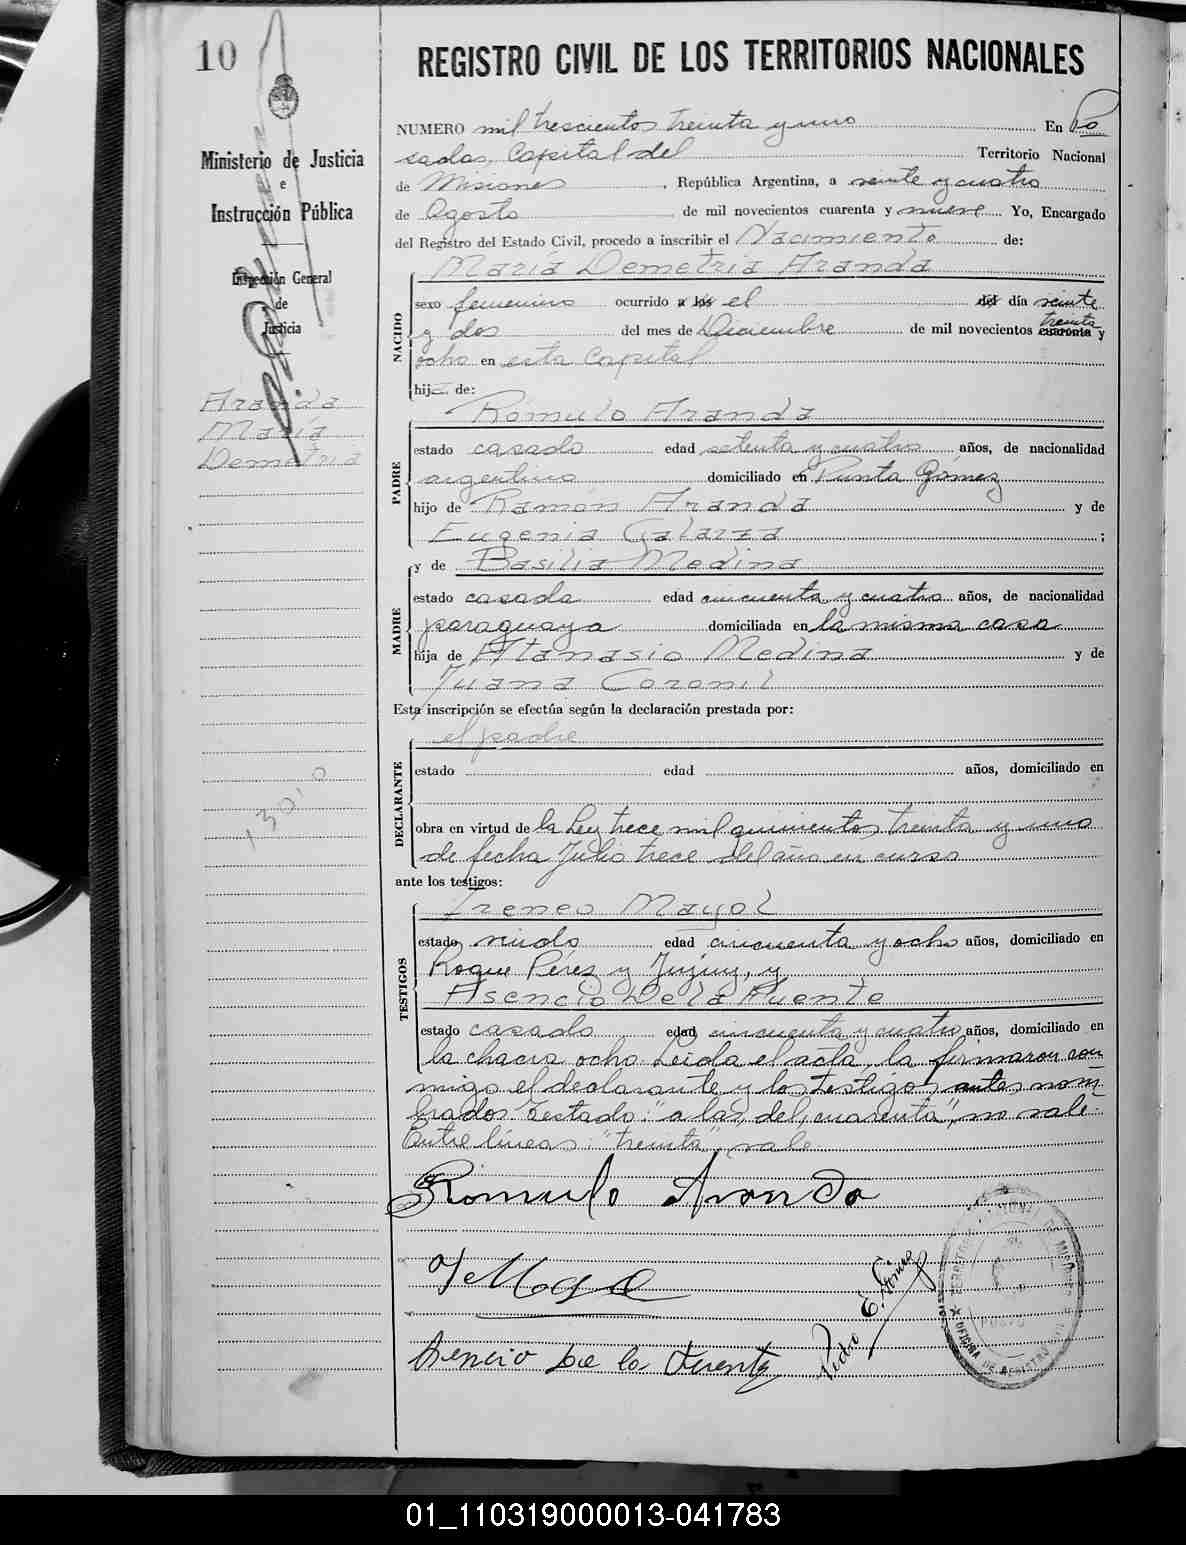 10
REGISTRO CIVIL DE LOS TERRITORIOS NACIONALES
Ministerio de Justicia
e
Instrucción Pública
Inspección General
de
Justicia
Aranda
María
Demetria
NUMERO mil trescientos treinta y uno En Po
sadas, Capital del Territorio Nacional
de Misiones, República Argentina, a veinte y cuatro
de Agosto de mil novecientos cuarenta y nueve Yo, Encargado
del Registro del Estado Civil, procedo a inscribir el Nacimiento de:
María Demetria Aranda
NACIDO
sexo femenino ocurrido a las el del día veinte
y dos del mes de Diciembre de mil novecientos cuarenta treinta y
ocho en esta Capital
hija de:
Rómulo Aranda
PADRE
estado casado edad setenta y cuatro años, de nacionalidad
argentino domiciliado en Punta Gómez
hijo de Ramón Aranda y de
Eugenia Galarza ;
y de Basilia Medina
MADRE
estado casada edad cincuenta y cuatro años, de nacionalidad
paraguaya domiciliada en la misma casa
hija de Atanasio Medina y de
Juana Coronil
Esta inscripción se efectúa según la declaración prestada por:
el padre
DECLARANTE
estado edad años, domiciliado en
obra en virtud de la Ley trece mil quinientos treinta y uno
de fecha Julio trece del año en curso
ante los testigos:
Ireneo Mayol
TESTIGOS
estado viudo edad cincuenta y ocho años, domiciliado en
Roque Pérez y Jujuy, y
Asencio De la Fuente
estado casado edad cincuenta y cuatro años, domiciliado en
la chacra ocho. Leída el acta, la firmaron con
migo el declarante y los testigos antes nom
brados. Testado: "a las, del, cuarenta", no vale.
Entre líneas: "treinta", vale.
Rómulo Aranda
Asencio De la Fuente
Pedro E. Gómez
TERRITORIO NACIONAL DE MISIONES
OFICINA DE REGISTRO CIVIL
01_110319000013-041783